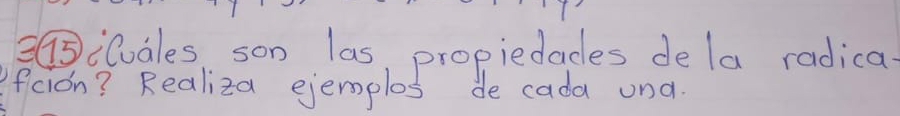 15 ¿Cuáles son las propiedades de la radica-
ción? Realiza ejemplos de cada una.